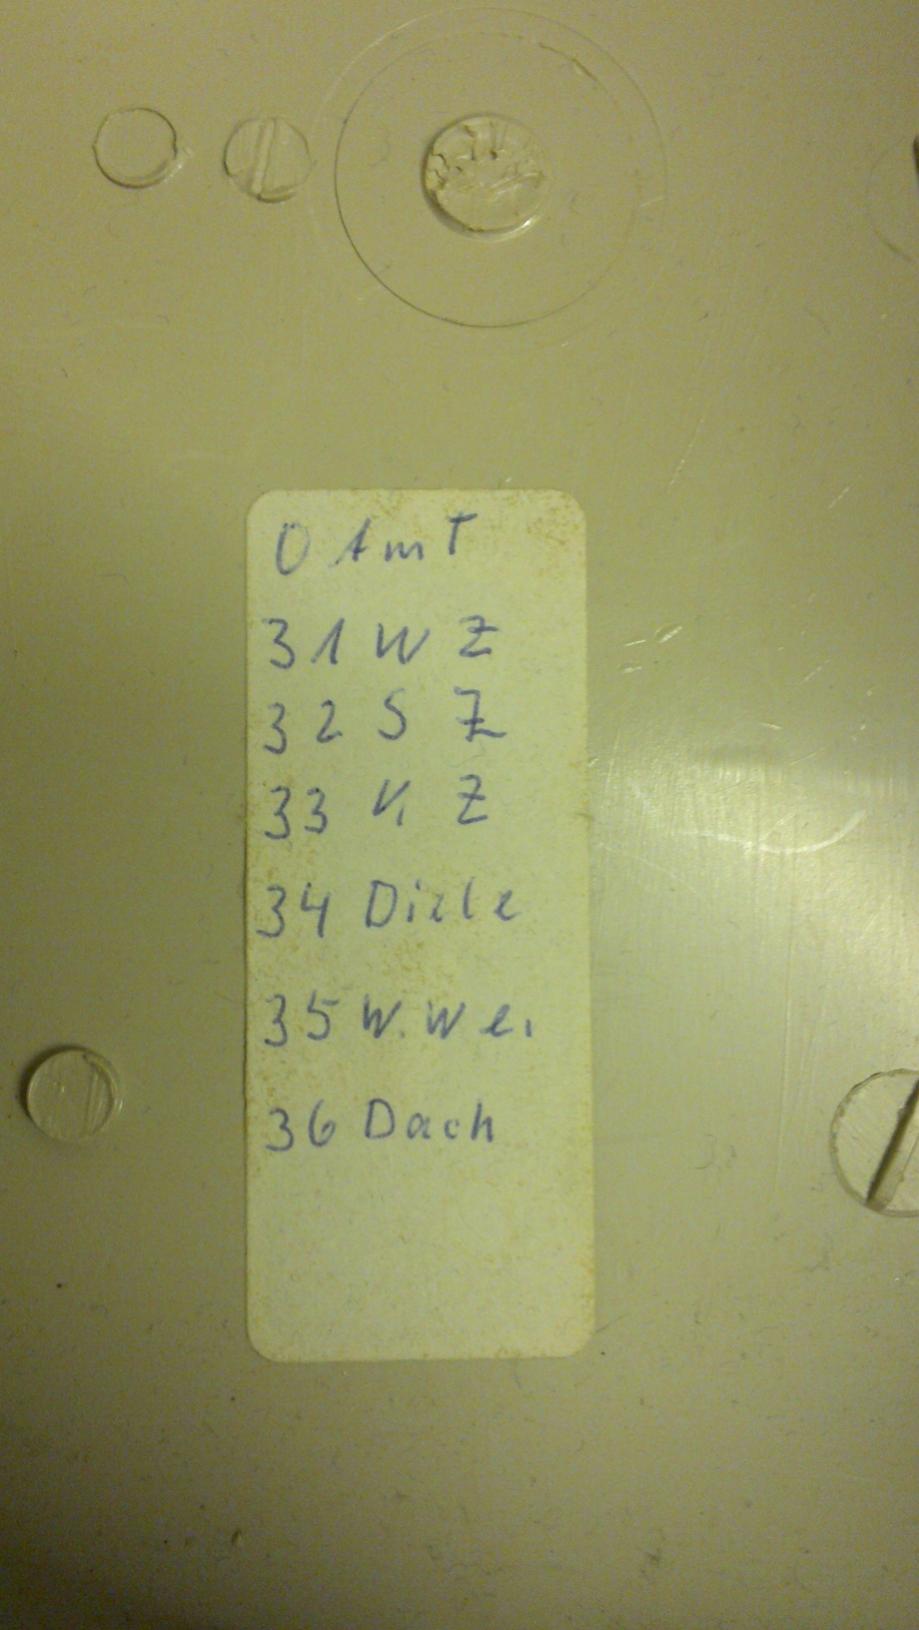 0 Amt
31 W Z
32 S Z
33 K Z
34 Diele
35 W. W e.
36 Dach